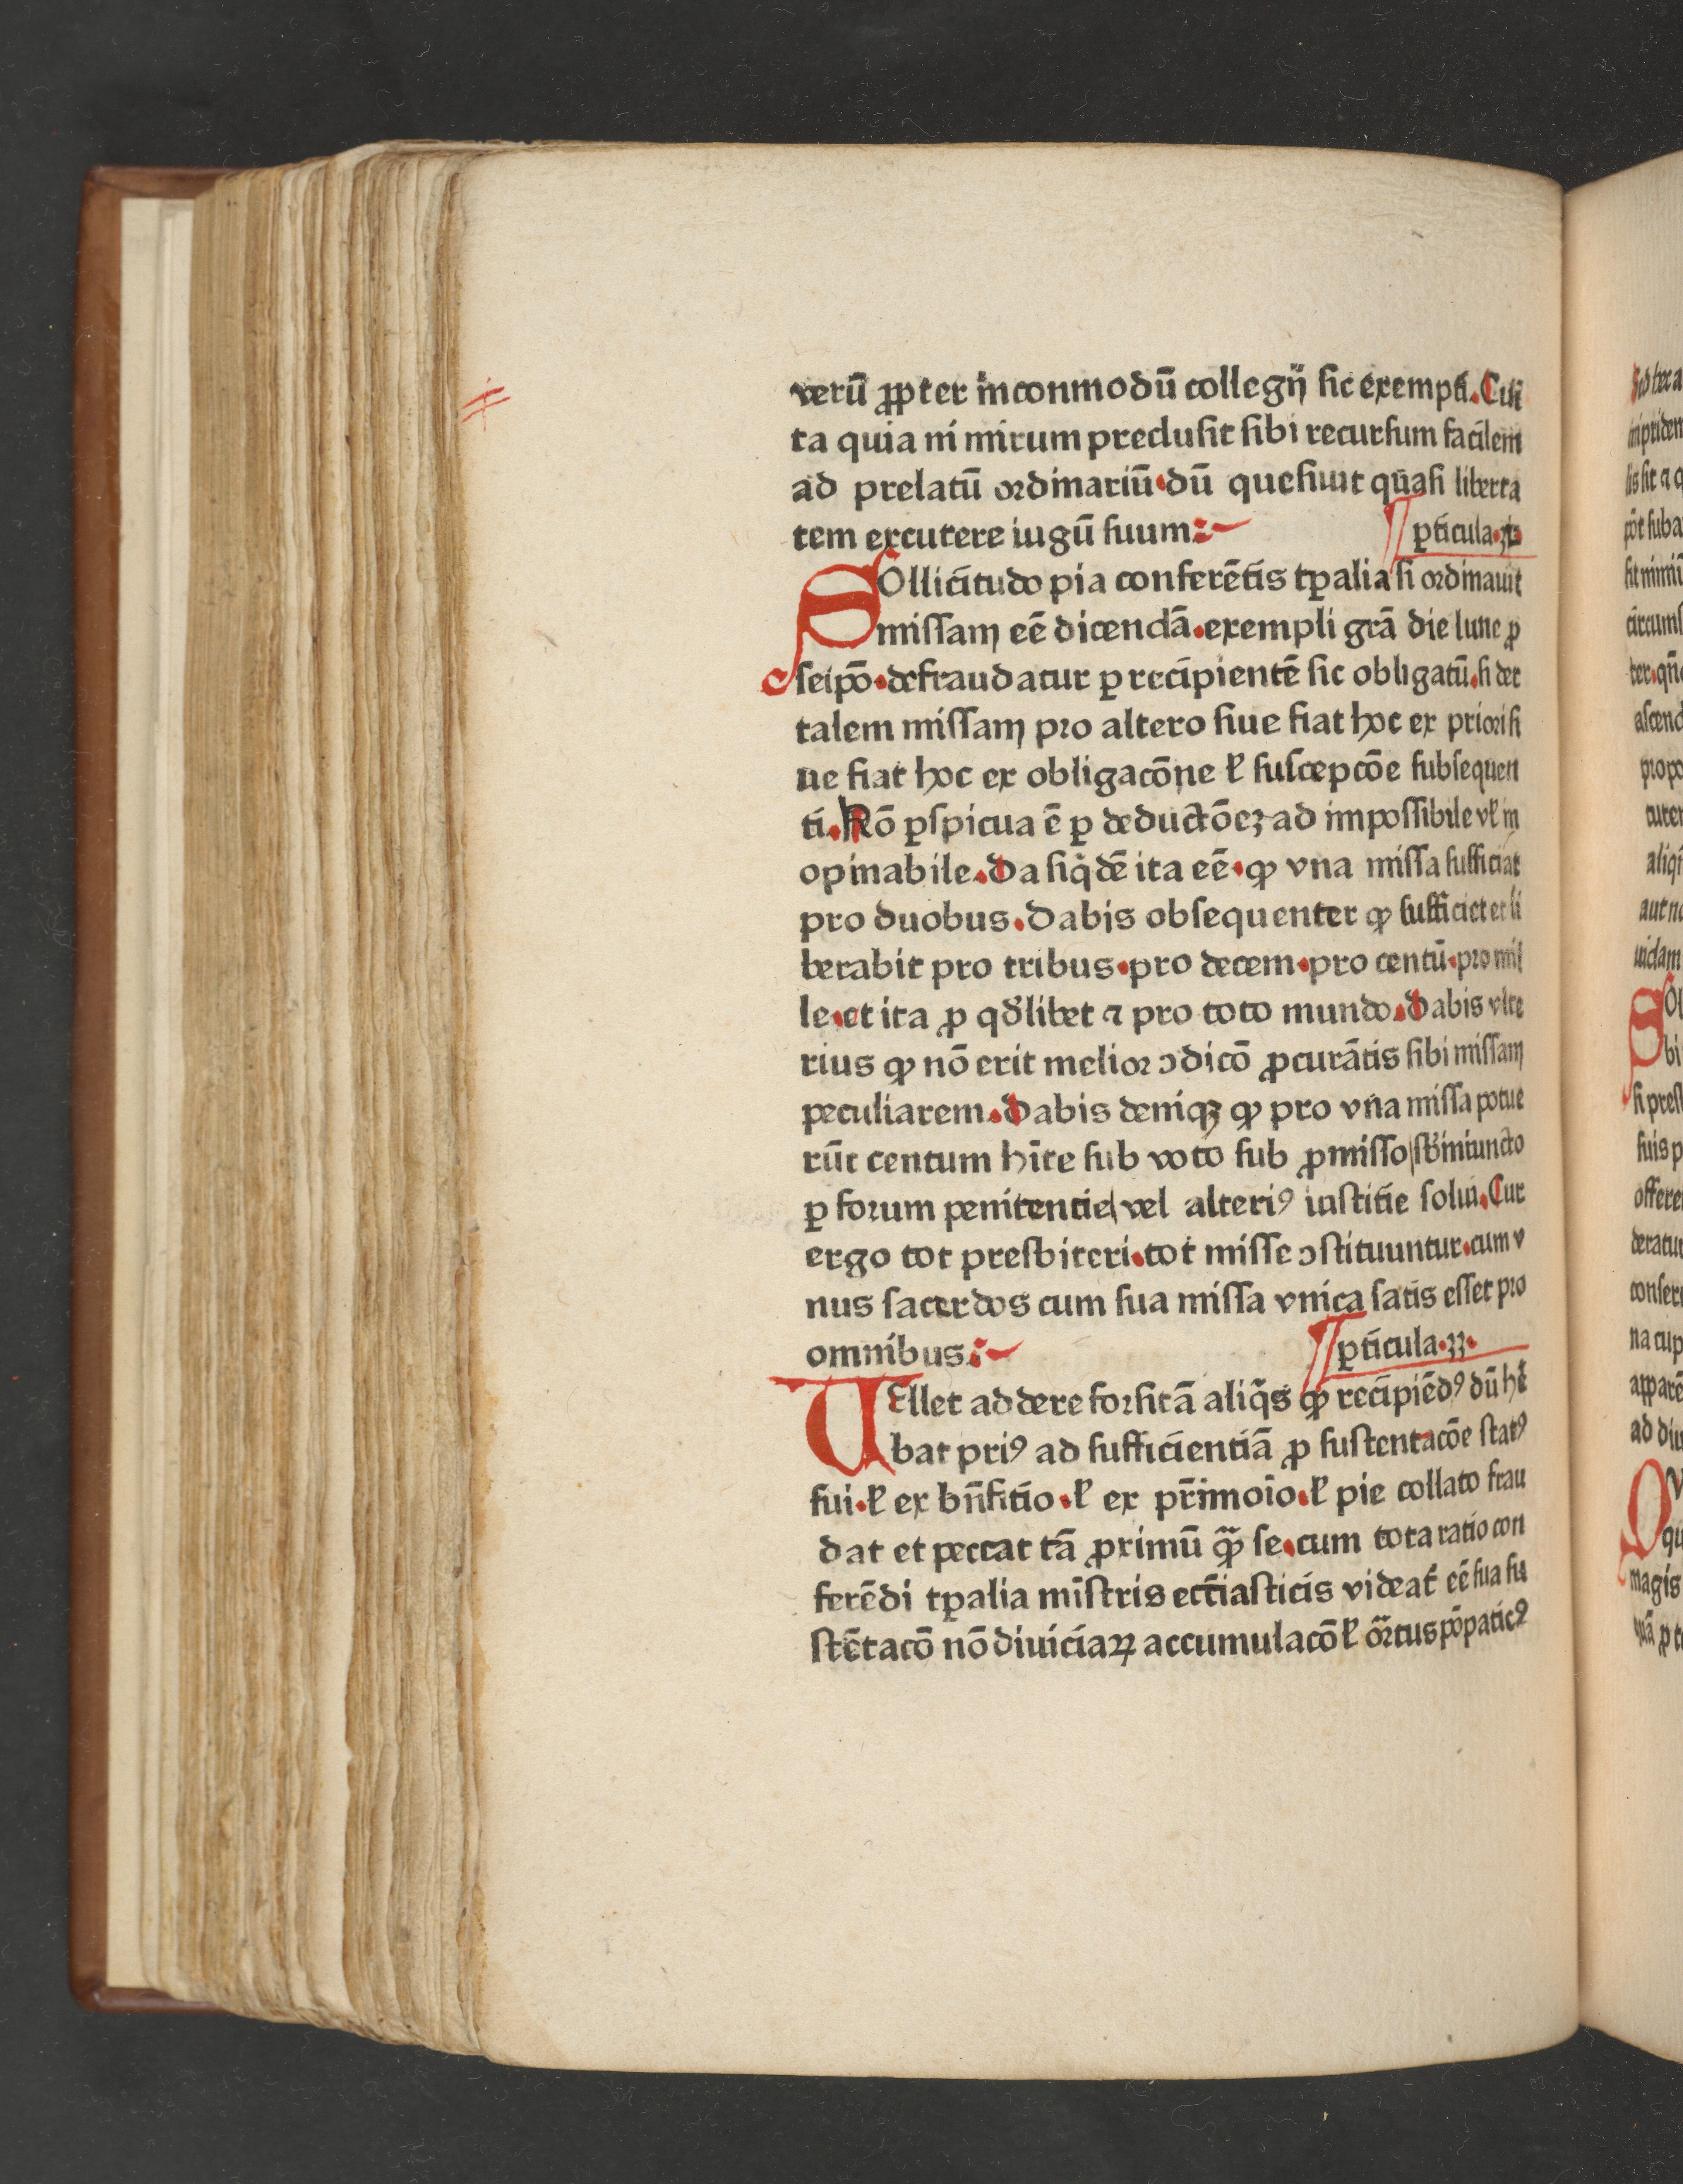 verū ꝓpter inconmodū collegij sic exempti. Cui
ta quia ni mirum preclusit sibi recursum facilem
ad prelatū ordinariū. dū quesiuit quasi liberta
tem excutere iugū suum:
ꝑticula. 32
SOllicitudo pia conferētis tꝑalia si ordinauit
missam eē dicendā. exempli grā die lune ꝓ
seipō. defraudatur ꝑ recipientē sic obligatū. si det
talem missam pro altero siue fiat hoc ex priori si
ue fiat hoc ex obligacōne ł suscepcōe subsequen
ti. Rō ꝑspicua ē ꝑ deductōeꝫ ad impossibile vł in
opinabile. Da siq̇dē ita eē. ꝙ vna missa sufficiat
pro duobus. Dabis obsequenter ꝙ sufficiet et li
berabit pro tribus. pro decem. pro centū. pro mil
le. et ita ꝓ qđlibet ⁊ pro toto mundo. Dabis vlte
rius ꝙ nō erit melior ↄdicō ꝓcurātis sibi missam
peculiarem. Dabis deniqꝫ ꝙ pro vna missa potue
rūt centum hīte sub voto sub ꝓmisso/ sb̄iniuncto
ꝑ forum penitentie/ vel alteriꝰ iustitie solui. Cur
ergo tot presbiteri. tot misse ↄstituuntur. cum v
nus sacerdos cum sua missa vnica satis esset pro
omnibus:
ꝑticula. 33.
VEllet addere forsitā aliq̇s ꝙ recipiēdꝰ dū hē
bat priꝰ ad sufficientiā ꝓ sustentacōe statꝰ
sui. ł ex bn̄fitio. ł ex pr̄imoīo. ł pie collato frau
dat et peccat tā ꝓximū qᷓꝫ se. cum tota ratio con
ferēdi tꝑalia mīstris eccīasticis videat̄ eē sua su
stētacō nō diuiciaꝝ accumulacō ł or̄tus pōpaticꝰ